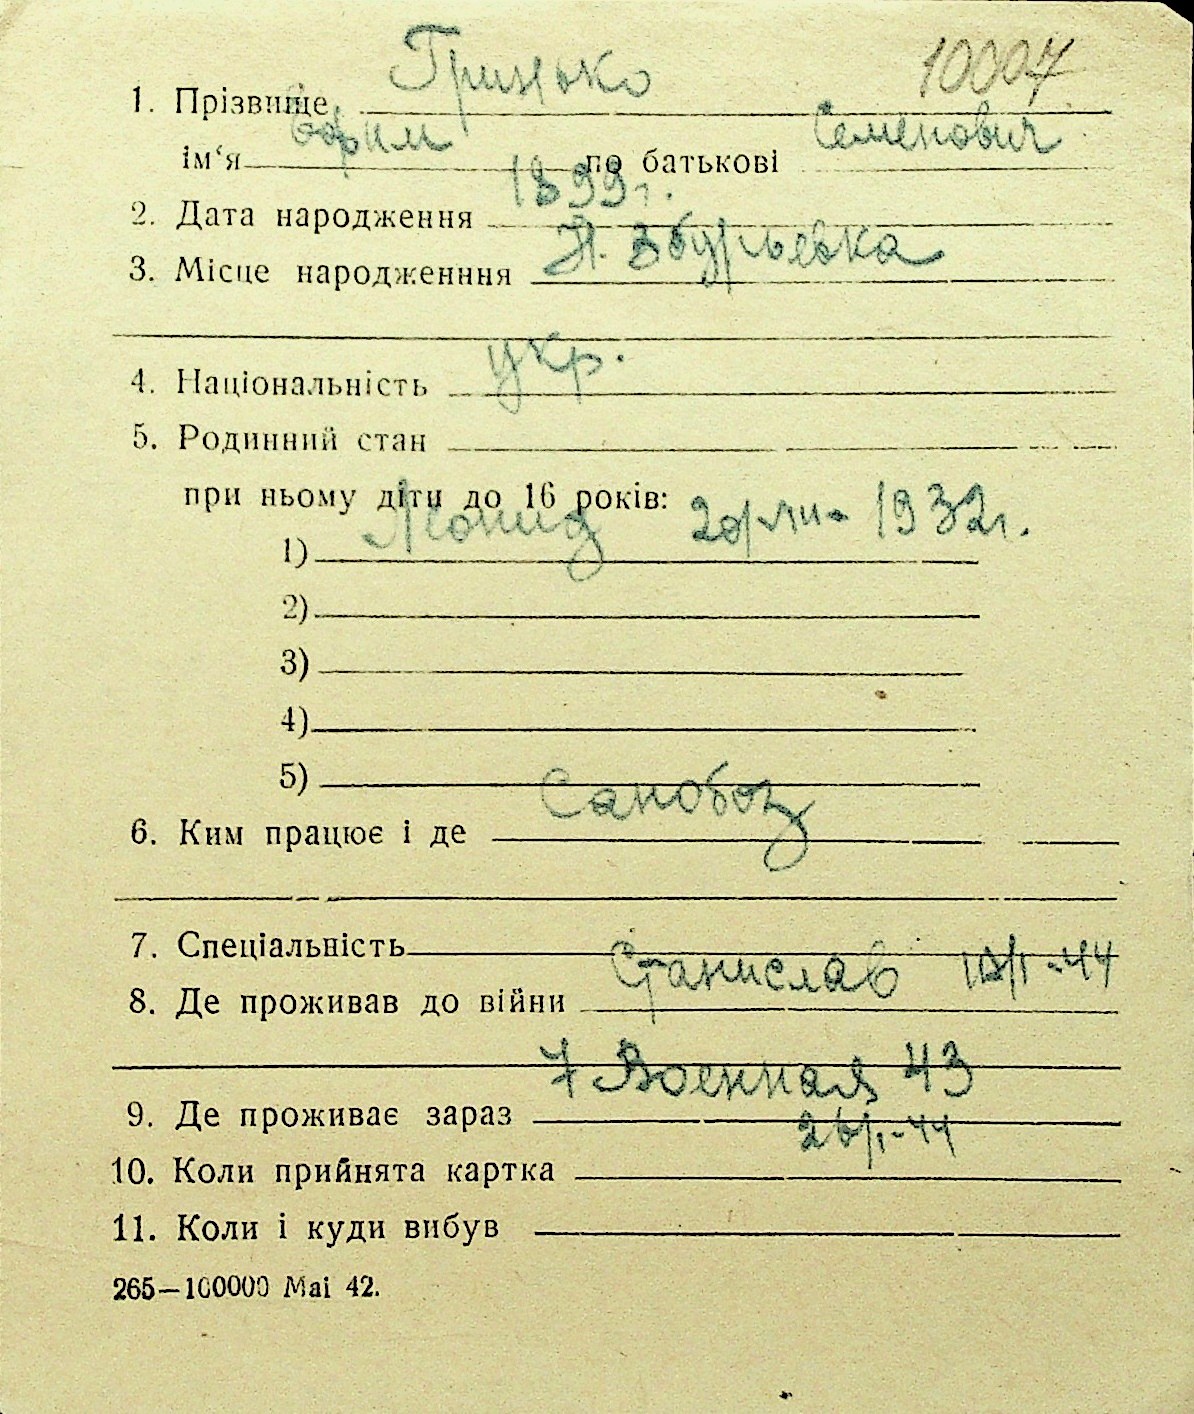 10007
1. Прізвище Гринько
ім‘я Ефим по батькові Семенович
2. Дата народження 1899г.
3. Місце народженння Н. Збурьевка
4. Національність укр.
5. Родинний стан
при ньому діти до 16 років:
1) Леонид 1932г.
2)
3)
4)
5)
6. Ким працює і де Санобоз
7. Спеціальність
8. Де проживав до війни Станислав
9. Де проживає зараз 7 Военная 43
10. Коли прийнята картка 26/I-44
11. Коли і куди вибув
265—100000 Mai 42.